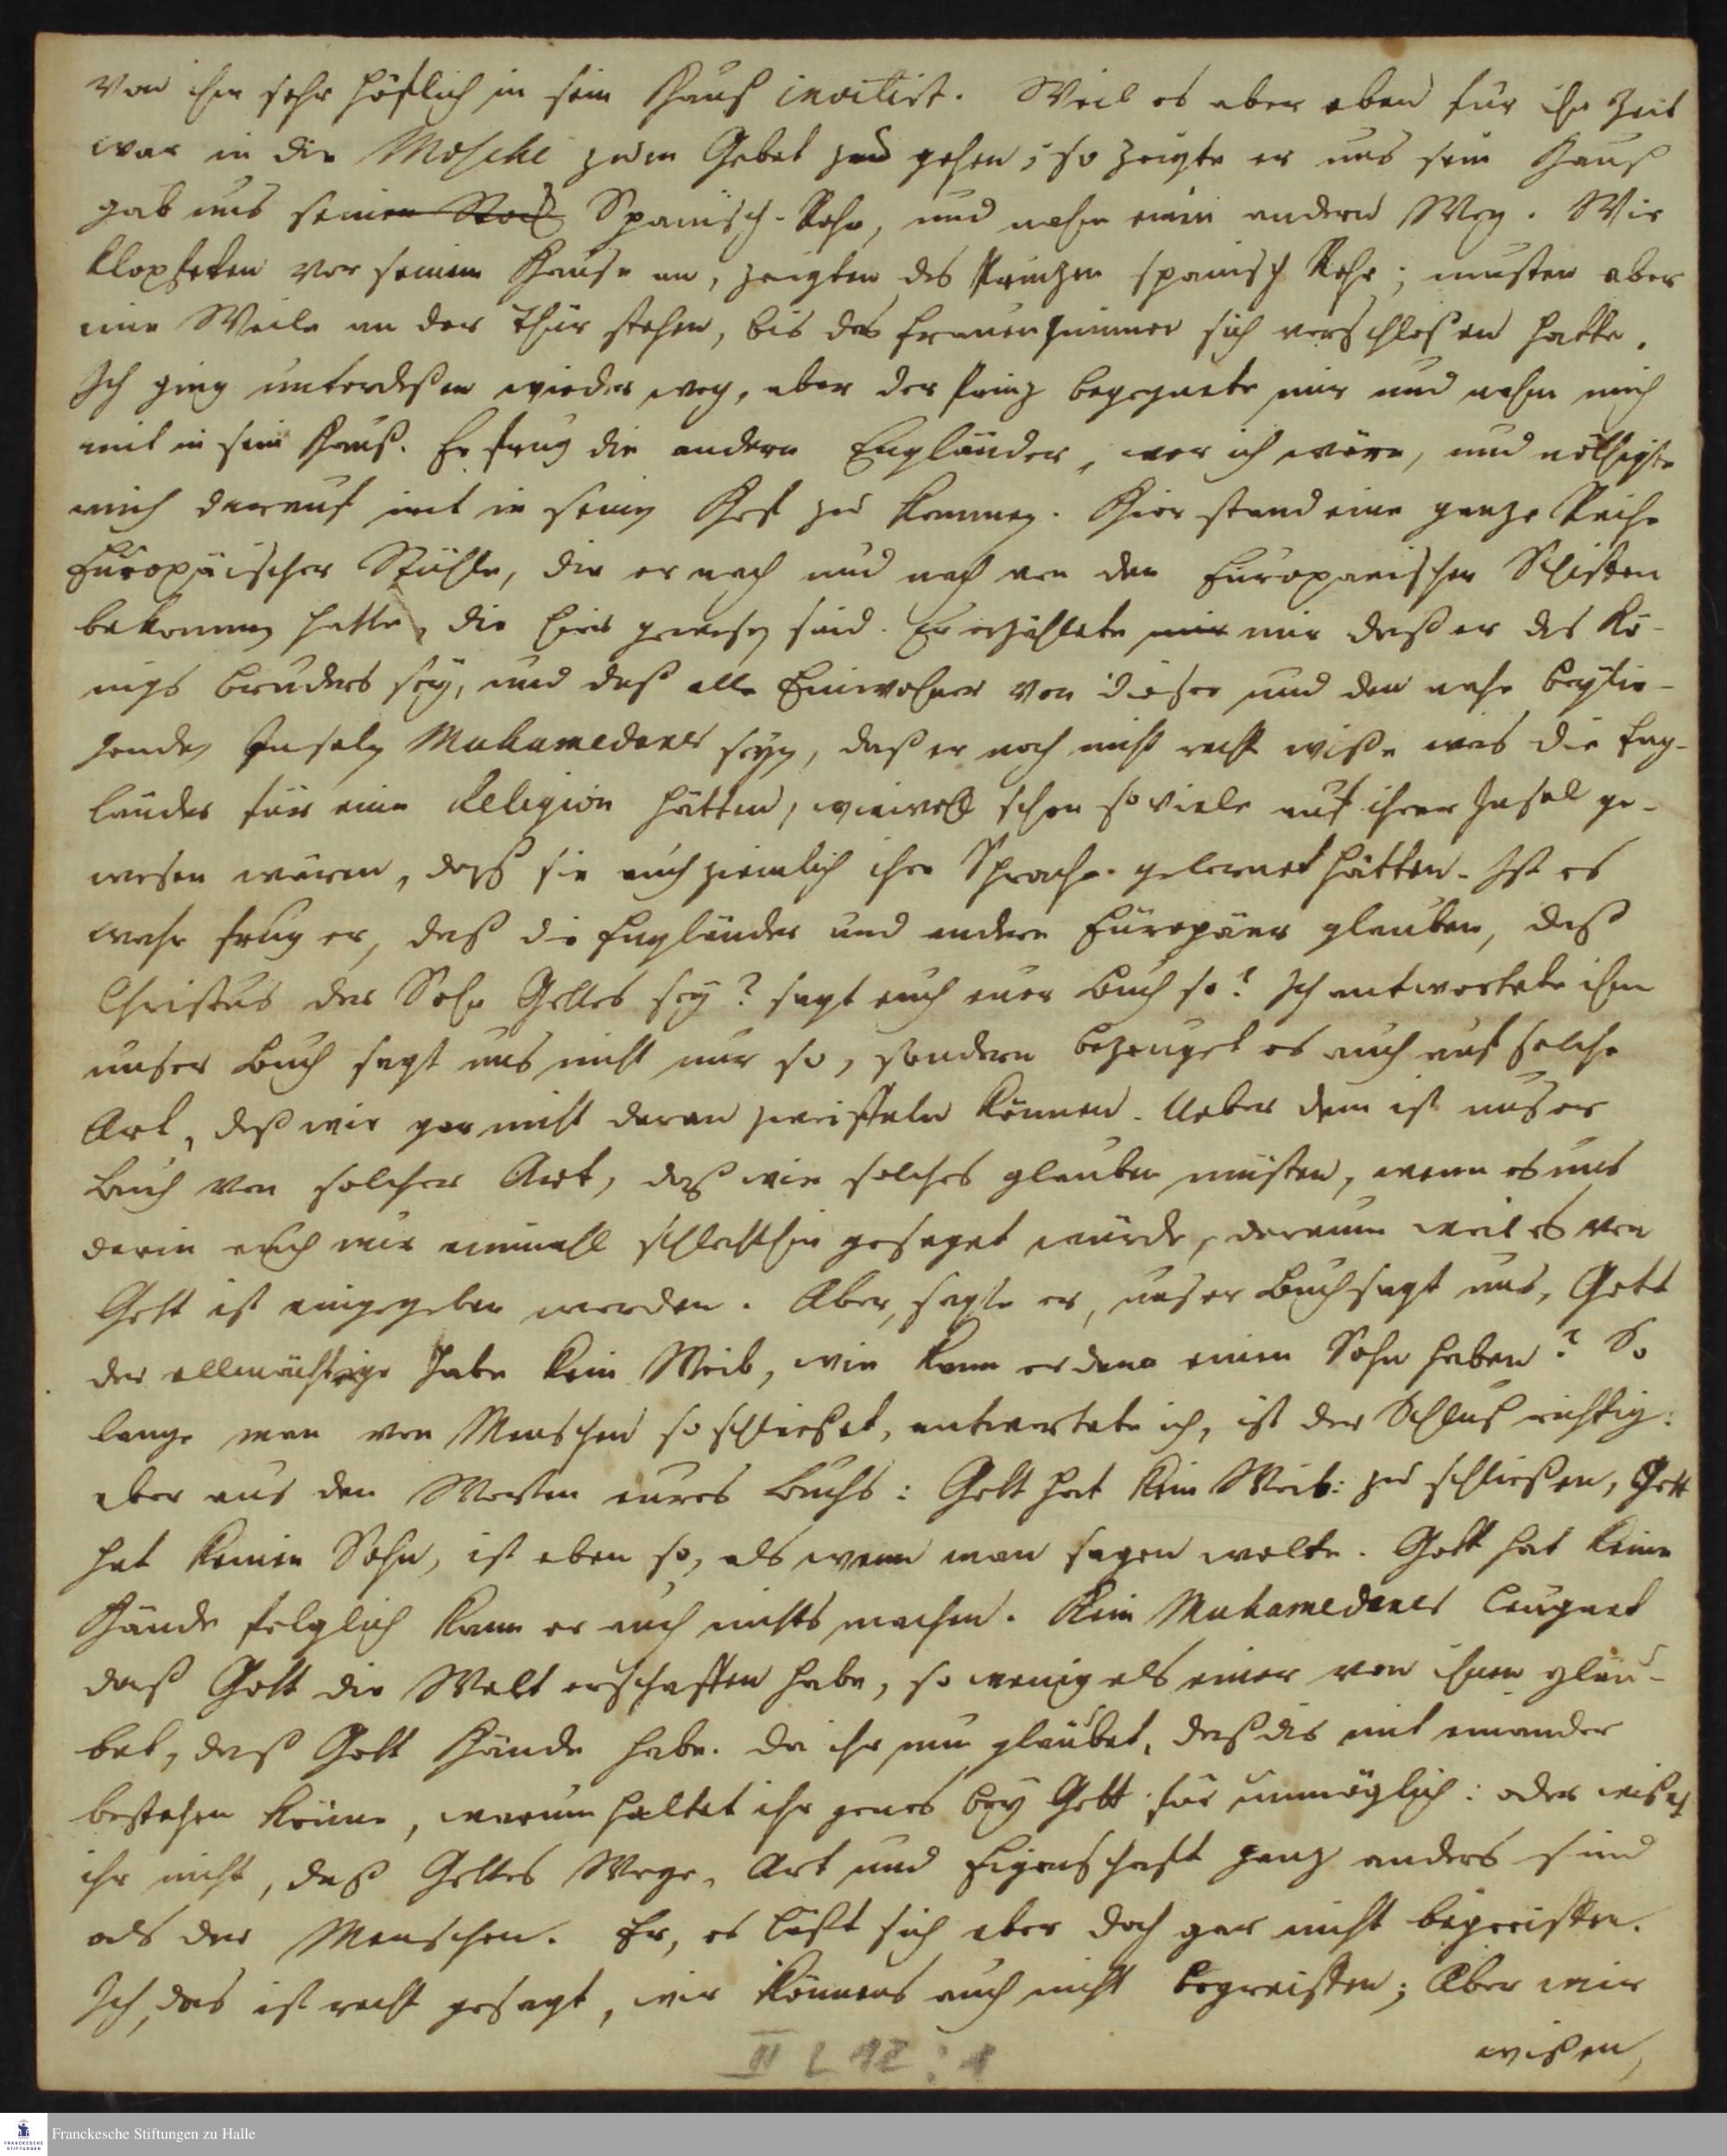 von ihm sehr höflich in sein Hauß invitirt. Weil es aber eben für ihn Zeit
war in die Mosche zum Gebet zu gehen; so zeigte er uns sein Hauß
gab uns seinen Stock Spanisch-Rohr, und nahm einen andern Weg. Wir
klopfeten vor seinem Hause an, zeigten des Prinzen spanisch Rohr; musten aber
eine Weile an der Thür stehen, bis das Frauenzimmer sich verschloßen hatte.
Ich ging unterdeßen wieder weg, aber der Prinz begegnete mir und nahm mich
mit in sein Hauß. Er frug die andern Engländer, wer ich wäre, und nöthigte
mich darauf mit in seinen Hof zu kommen. Hier stand eine ganze Reihe
Europäischer Stühle, die er nach und nach von den Europaeischen Schiffen
bekommen hatte, die hier gewesen sind. Er erzählete mir mir daß er des Kö-
nigs Bruders sey, und daß alle Einwohner von dieser und den nahe beylie-
genden Inseln Muhamedaner seyn, daß er noch nicht recht wiße was die Eng-
länder für eine Religion hätten, wiewoll schon so viele auf ihrer Insel ge-
wesen wären, daß sie auch ziemlich ihre Sprache gelernet hätten. Ist es
wahr frug er, daß die Engländer und andere Europäer glauben, daß
Christus der Sohn Gottes sey? sagt euch euer Buch so? Ich antwortete ihm
unser Buch sagt uns nicht nur so, sondern bezeuget es auch auf solche
Art, daß wir gar nicht daran zweiffeln können. Ueber dem ist unser
Buch von solcher Art, daß wir solches glauben müsten, wenn es uns
darin auch nur einmahl schlechthin gesaget würde, darum weil es von
Gott ist eingegeben worden. Aber, sagte er, unser Buch sagt uns, Gott
der allmächtige habe kein Weib, wie kann er denn einen Sohn haben? So
lange man von Menschen so schließet, antwortete ich, ist der Schluß richtig:
aber aus den Worten eures Buchs: Gott hat kein Weib: zu schließen, Gott
hat keinen Sohn, ist eben so, als wenn man sagen wolte. Gott hat keine
Hände folglich kann er auch nichts machen. Kein Muhamedaner leugnet
daß Gott die Welt erschaffen habe, so wenig als einer von ihnen gläu-
bet, daß Gott Hände habe. Da ihr nun gläubet, daß dis mit einander
bestehen könne, warum haltet ihr jenes bey Gott für unmöglich: oder wißet
ihr nicht, daß Gottes Wege, Art und Eigenschaft ganz anders sind
als der Menschen. Er, es läßt sich aber doch gar nicht begreiffen.
Ich, das ist recht gesagt, wir können's auch nicht begreiffen; Aber wir
wißen,
II L 12 : 1
Franckesche Stiftungen zu Halle